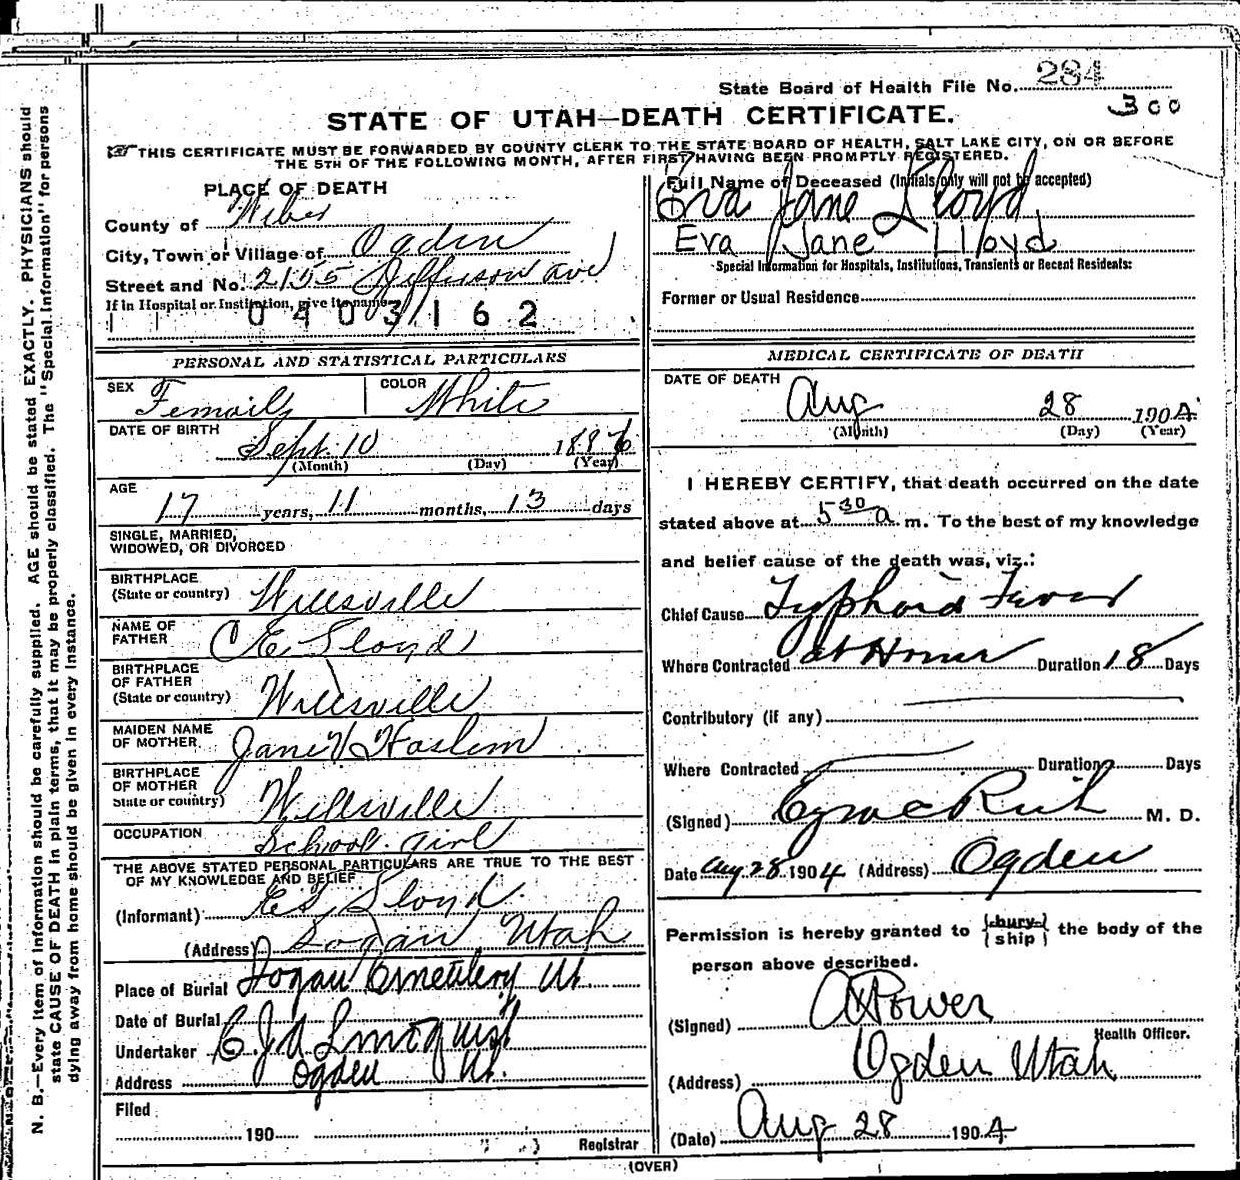 State Board of Health File No. 284
300
STATE OF UTAH—DEATH CERTIFICATE.
THIS CERTIFICATE MUST BE FORWARDED BY COUNTY CLERK TO THE STATE BOARD OF HEALTH, SALT LAKE CITY, ON OR BEFORE
THE 5TH OF THE FOLLOWING MONTH, AFTER FIRST HAVING BEEN PROMPTLY REGISTERED.
PLACE OF DEATH
County of Weber
City, Town or Village of Ogden
Street and No. 2155 Jefferson ave
If in Hospital or Institution, give its name
0403162
Full Name of Deceased (Initials only will not be accepted)
Eva Jane Lloyd
Eva Jane Lloyd
Special Information for Hospitals, Institutions, Transients or Recent Residents:
Former or Usual Residence
PERSONAL AND STATISTICAL PARTICULARS
SEX Femail
COLOR White
DATE OF BIRTH Sept. 10 1886
(Month) (Day) (Year)
AGE
17 years, 11 months, 13 days
SINGLE, MARRIED,
WIDOWED, OR DIVORCED
BIRTHPLACE
(State or country) Willsville
NAME OF
FATHER C E Lloyd
BIRTHPLACE
OF FATHER
(State or country) Willsville
MAIDEN NAME
OF MOTHER Jane Haslem
BIRTHPLACE
OF MOTHER
State or country) Willsville
OCCUPATION School girl
THE ABOVE STATED PERSONAL PARTICULARS ARE TRUE TO THE BEST
OF MY KNOWLEDGE AND BELIEF
(Informant) Lloyd
(Address) Logan Utah
Place of Burial Logan Cemetery Ut.
Date of Burial
Undertaker C.J.A Lindquist
Address Ogden Ut.
Filed
190
Registrar
MEDICAL CERTIFICATE OF DEATH
DATE OF DEATH
Aug 28 1904
(Month) (Day) (Year)
I HEREBY CERTIFY, that death occurred on the date
stated above at 5 30 a m. To the best of my knowledge
and belief cause of the death was, viz.:
Chief Cause Typhoid Fever
Where Contracted at Home Duration 18 Days
Contributory (if any)
Where Contracted Duration Days
(Signed) Rich M. D.
Date Aug. 28 1904 (Address) Ogden
Permission is hereby granted to bury
ship the body of the
person above described.
(Signed) Power
Health Officer.
(Address) Ogden Utah
(Date) Aug 28 1904
(OVER)
N. B.—Every item of information should be carefully supplied. AGE should be stated EXACTLY. PHYSICIANS should
state CAUSE OF DEATH in plain terms, that it may be properly classified. The "Special Information" for persons
dying away from home should be given in every instance.